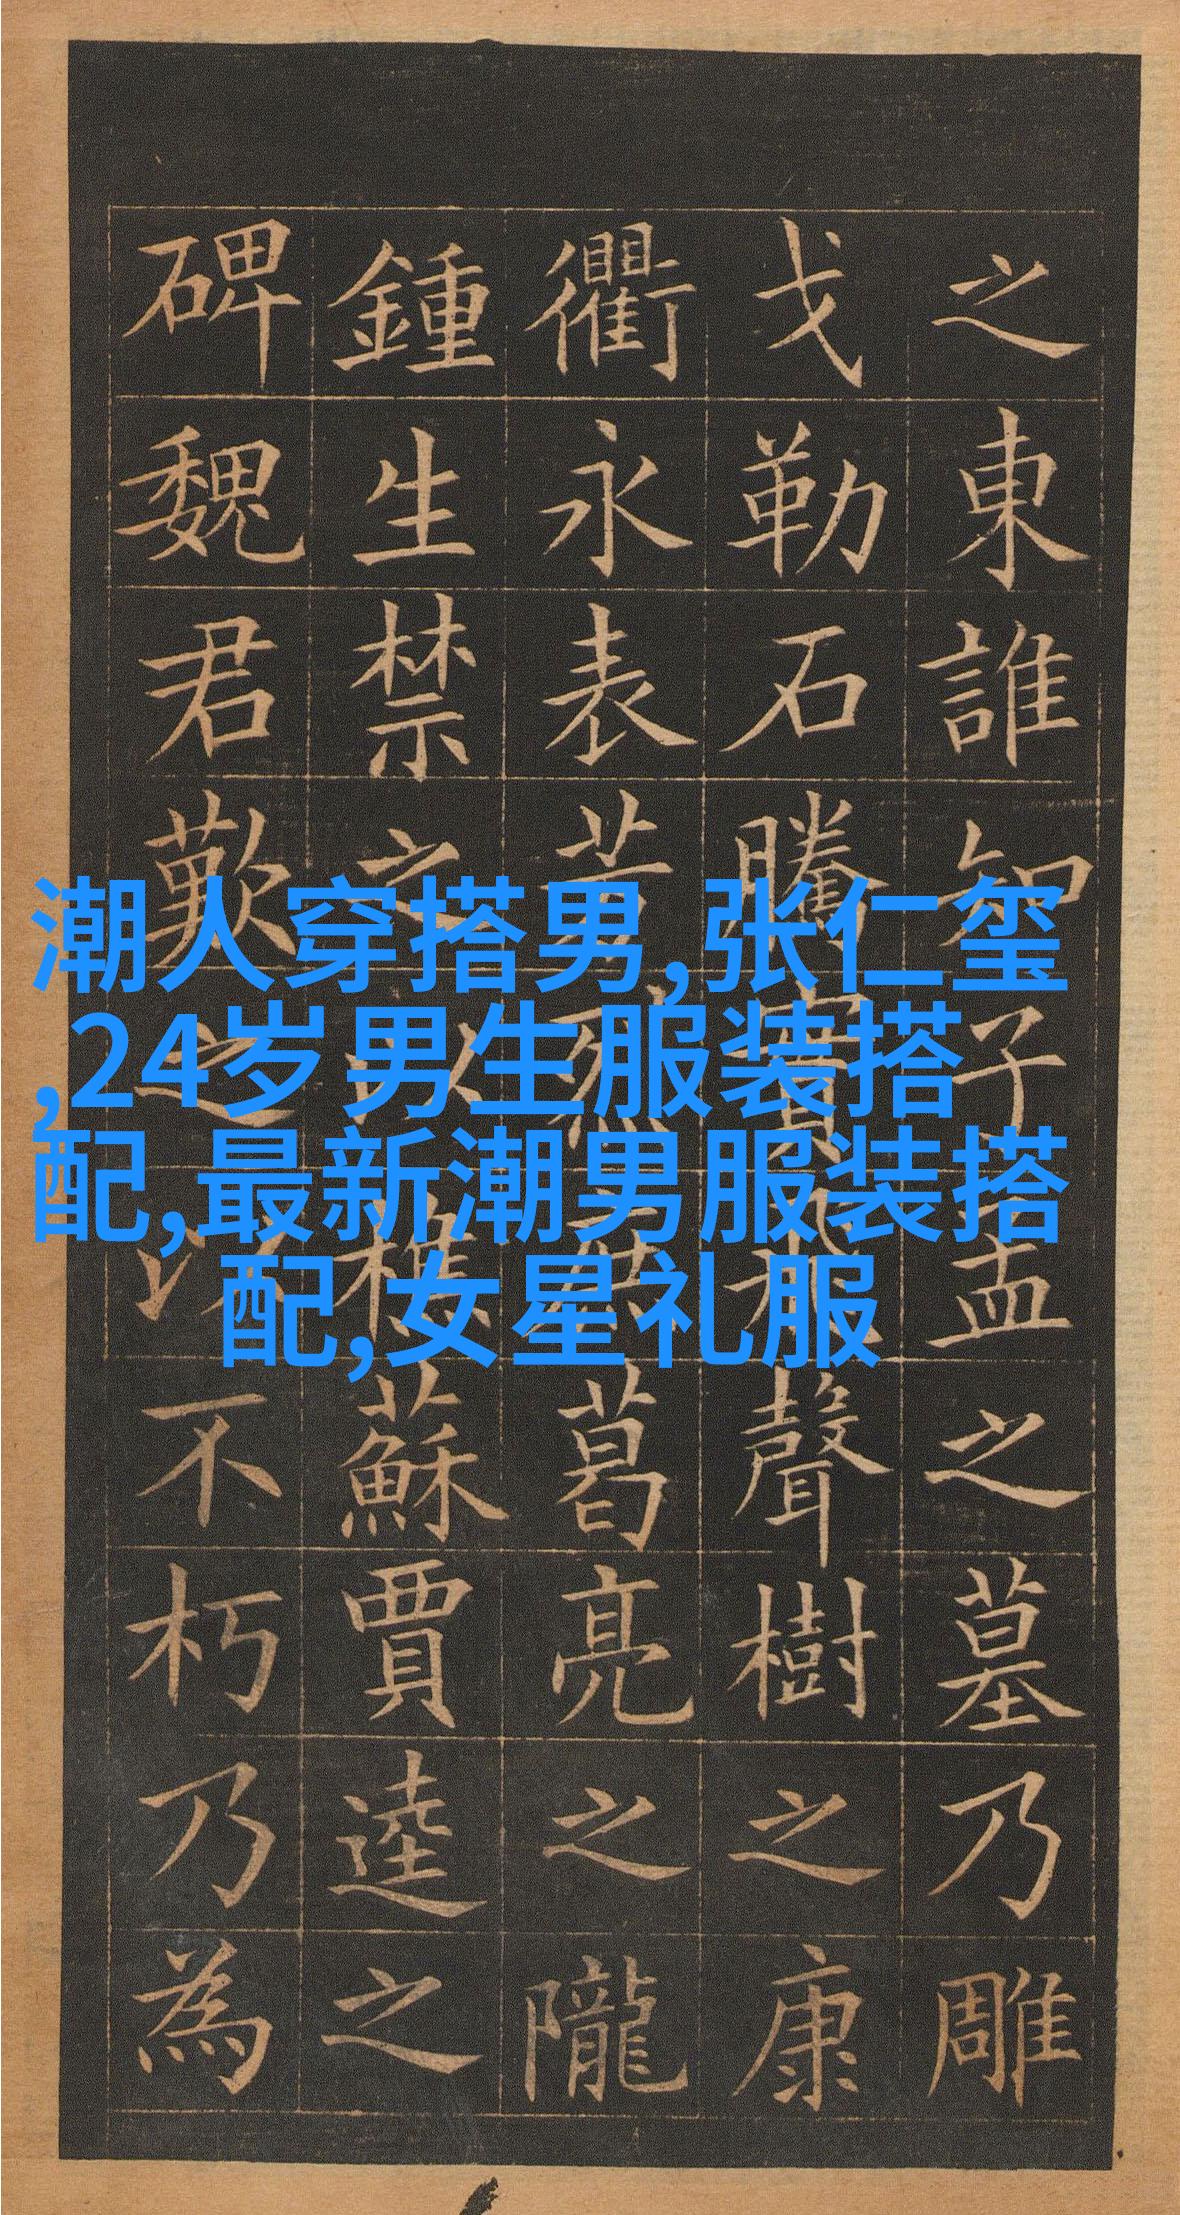 之東誰知子孟之墓乃雕
戈勒石騰實飛聲樹之康
衢永表芳烈葛亮之隴
鍾生禁之以樵蘇賈逵之
碑魏君歎之以不朽乃為
潮人穿搭男,张仁玺
,24岁男生服装搭
配,最新潮男服装搭
配,女星礼服